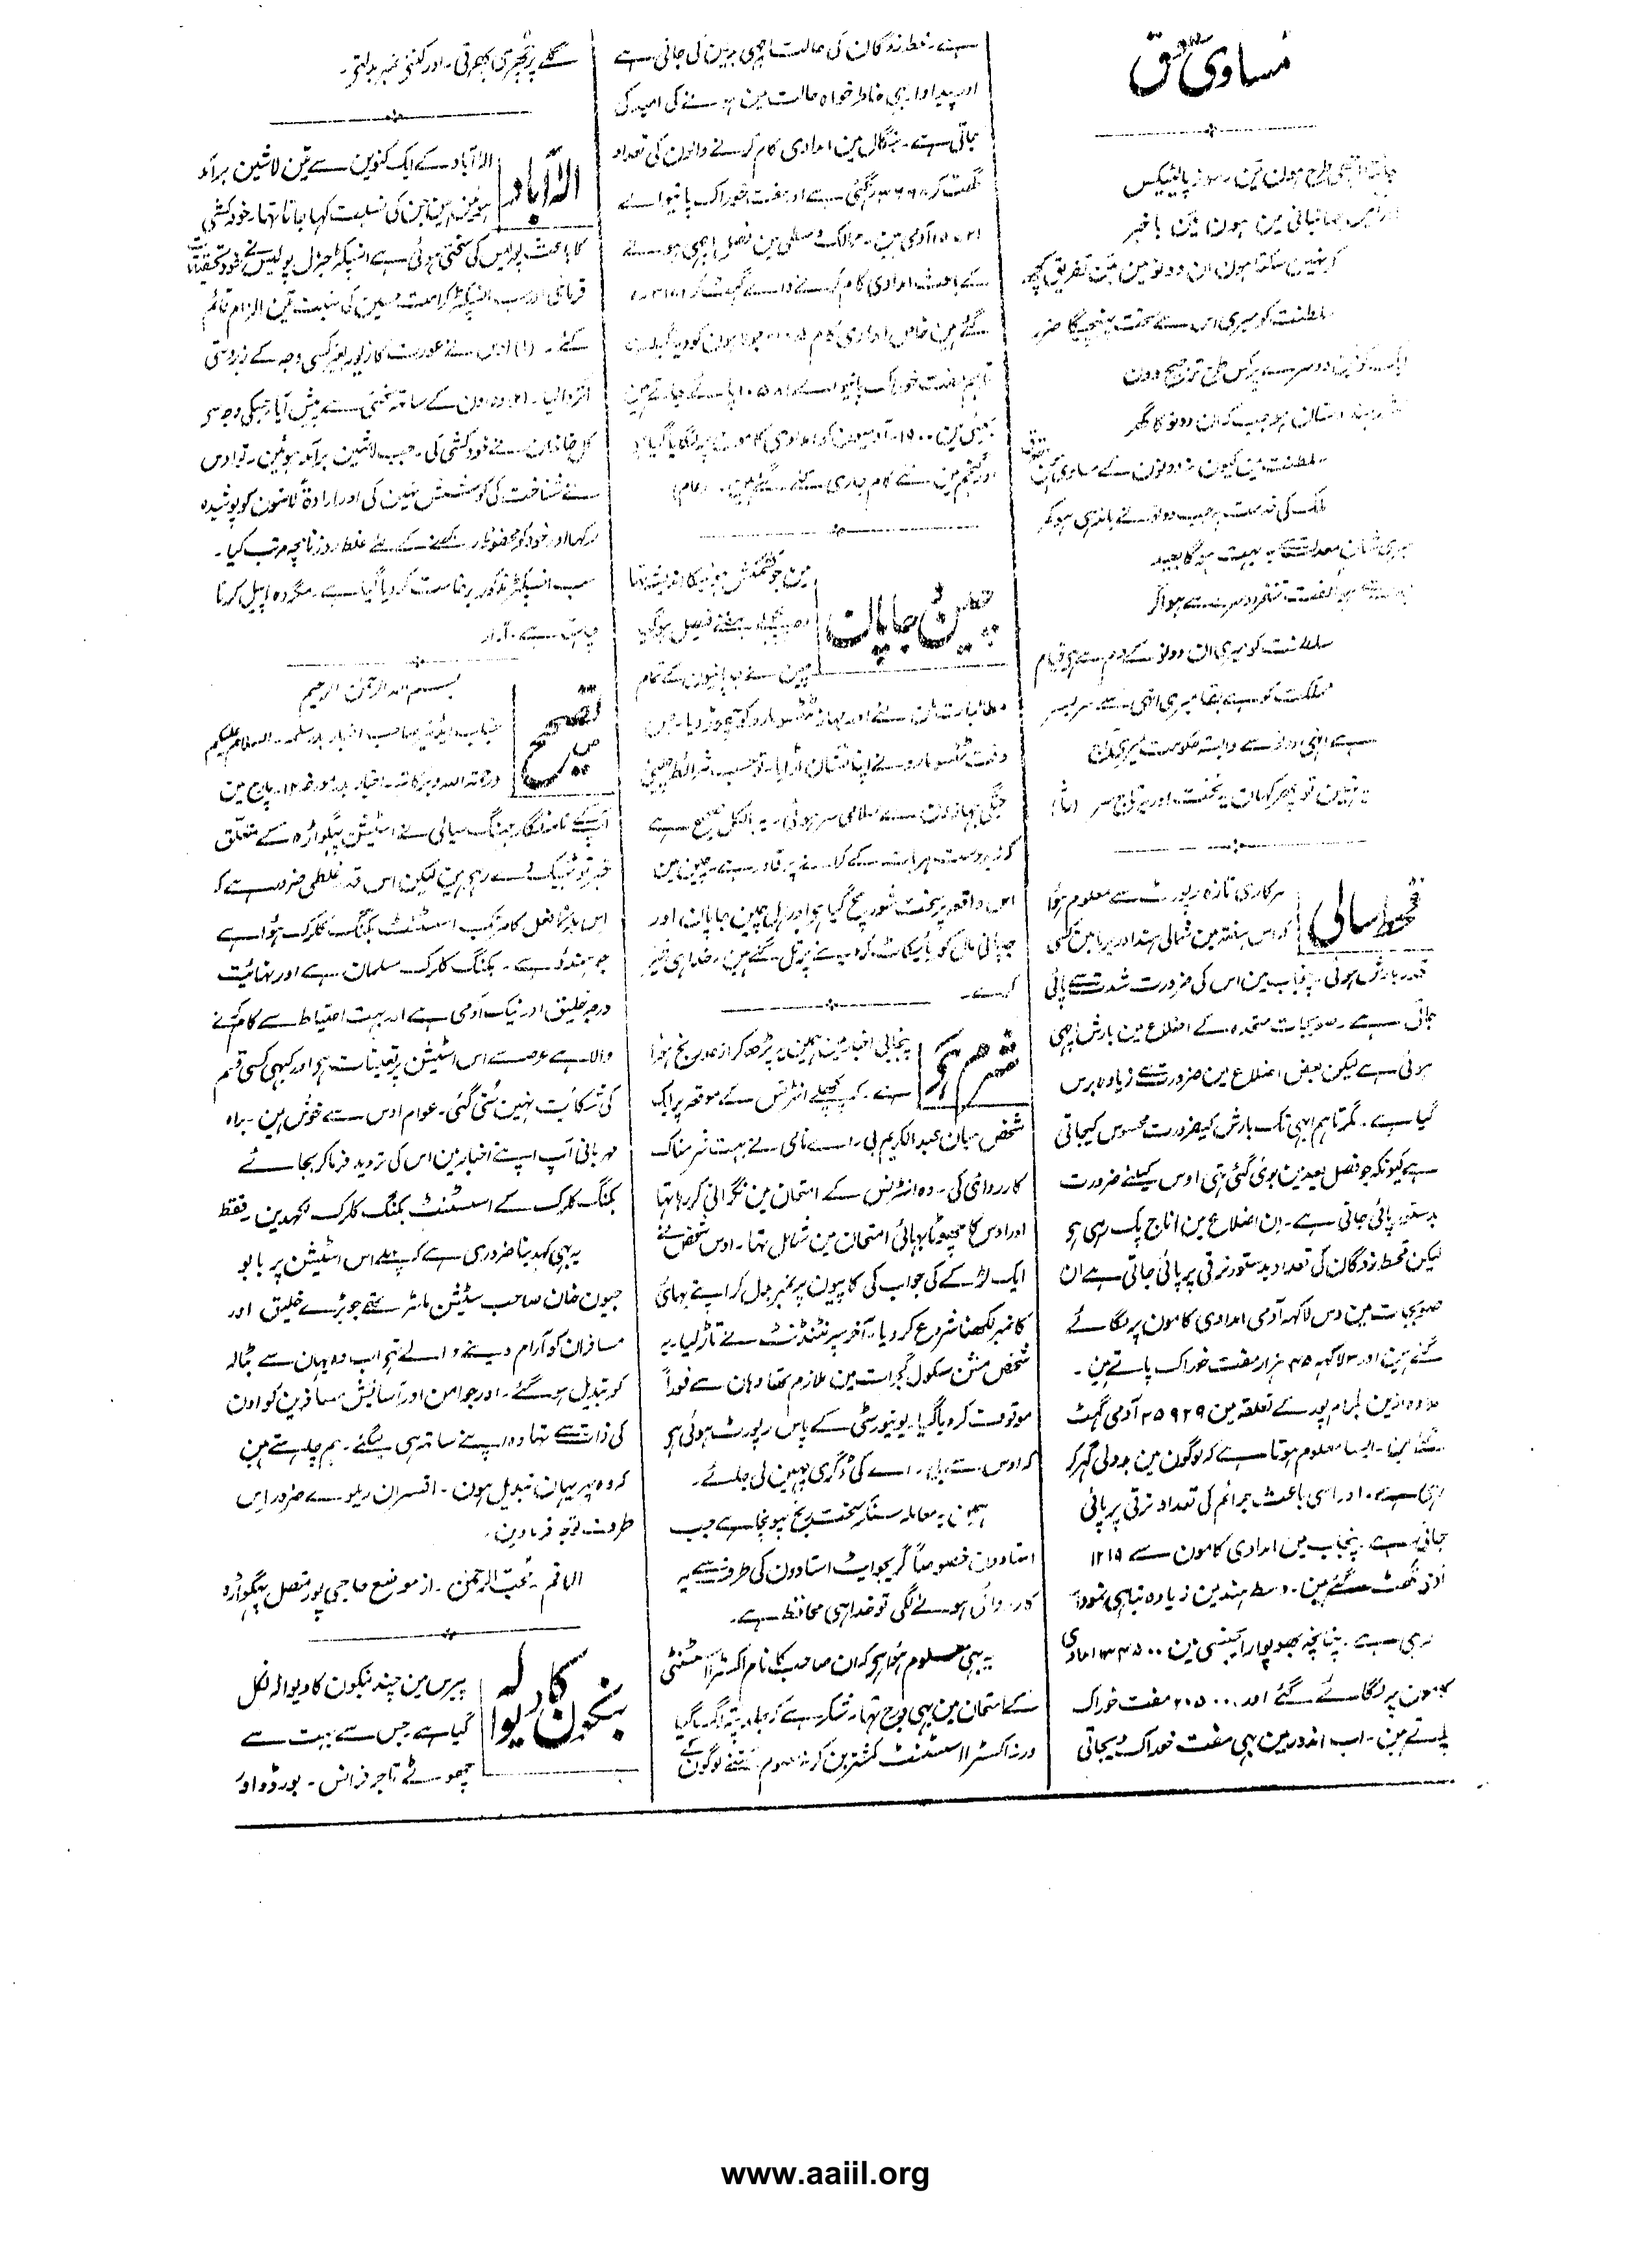 مساوی حق
جانتا اچھی طرح ہون مین رموز پالیٹیکس
جہانبانی مین ہون مین باخبر
کر نہین سکتا ہون ان دونو مین مین تفریق کچھ
سلطنت کو میری اس سے سخت پہنچیگا ضرر
ایک کو مین دوسرے پر کس طرح ترجیح دون
ہندوستان جب کہ ان دونو کا گھر
سلطنت مین کیون نہ دونون کے مساوی ہون حقوق
ملک کی خدمت پر جب دونو نے باندھی ہو کمر
میری شان معدلت سے یہ بہت ہوگا بعید
سلطنت کو میری ان دونو کے دم سے ہی قیام
مملکت کو ہے بقا میری انہی سے سربسر
ہے انہی دونو سے وابستہ حکومت میری آج
یہ نہین تو پھر کہان یہ تخت اور یہ تاج سر
قحط سالی
سرکاری تازہ رپورٹ سے معلوم ہوا
کہ اس ہفتہ مین شمالی ہند اور برہما مین کسی
قدر بارش ہوئی۔ پنجاب مین اس کی ضرورت شدت سے پائی
جاتی ہے۔ صوبجات متحدہ کے اضلاع مین بارش اچھی
ہوئی ہے لیکن بعض اضلاع مین ضرورت سے زیادہ برس
گیا ہے۔ مگر تاہم ابھی تک بارش کی ضرورت محسوس کیجاتی
ہے کیونکہ جو فصل بعد مین بوئی گئی تہی اوس کیلئے ضرورت
بدستور پائی جاتی ہے۔ ان اضلاع مین اناج پک رہی ہو
لیکن قحط زدگان کی تعداد بدستور ترقی پر پائی جاتی ہے ان
صوبجات مین دس لاکہہ آدمی امدادی کامون پر لگائے
گئے ہین اور ۳ لاکہہ ۴۵ ہزار مفت خوراک پاتے ہین۔
علاوہ ازین بلرام پور کے تعلقہ مین ۲۵۹۲۹ آدمی گہٹ
گئے ہین۔ ایسا معلوم ہوتا ہے کہ لوگون مین بددلی گہر کر
رہی ہے۔ اور اسی باعث جرائم کی تعداد ترقی پر پائی
جاتی ہے۔ پنجاب مین امدادی کامون سے ۱۲۱۹
آدمی گھٹ گئے ہین۔ وسط ہند مین زیادہ تباہی نمودار
ہو رہی ہے۔ چنانچہ بھوپوار ایجنسی مین ۱۳۴۵۰۰ امدادی
کامون پر لگائے گئے اور ۲۵۰۰ مفت خوراک
پاتے ہین۔ اب اندور مین بہی مفت خوراک دیجاتی
ہے۔ قحط زدگان کی حالت اچھی بیان کی جاتی ہے
اور پیداوار بہی خاطر خواہ حالت مین ہونے کی امید کی
جاتی ہے۔ بنگال مین امدادی کام کرنے والون کی تعداد
گھٹ کر رہ گئی ہے اور مفت خوراک پانیوالے
آدمی ہین۔ ممالک وسطی مین فصل اچھی ہونے
کے باعث امدادی کام کرنے والے گہٹ کر
گئے ہین
تاہم مفت خوراک پانیوالے
بمبئی مین ۱۵۰۰ آدمیون کو امدادی کامون پر لگایا گیا ہے
اور گنجم مین نئے کام جاری کئے گئے ہین۔ (عام)
چین جاپان
مین جو کشمکش ہونیکا اندیشہ تہا
وہ پچھلے ہفتے فیصل ہوگیا
چین نے جاپانیون کے تمام
مطالبات مان لئے اور جہاز ٹٹسو مارو کو چھوڑ دیا۔ جس
وقت ٹٹسو مارو نے اپنا نشان اڑایا۔ تو حسب شرائط چینی
جنگی جہازون سے سلامی سر ہوئی۔ یہ بالکل صحیح ہے
کہ زبردست ہر بات کے کرانے پر قادر ہے۔ چین مین
اس واقعہ پر سخت شور مچ گیا ہو اور اہالی چین جاپان اور
جاپانی مال کو بائیکاٹ کر دینے پر تل گئے ہین۔ خدا ہی خیر
کرے۔
شرم ہو گو
پنجابی اخبار مین ہمین یہ پڑھ کر از حد رنج ہوا
ہے۔ کہ پچھلے انٹرنس کے موقعہ پر ایک
شخص میان عبدالکریم بی۔ اے نامی نے بہت شرمناک
کارروائی کی۔ وہ انٹرنس کے امتحان مین نگرانی کر رہا تہا
اور اوس کا چھوٹا بہائی امتحان مین شامل تہا۔ اوس شخص نے
ایک لڑکے کی جواب کی کاپیون پر نمبر بدل کر اپنے بہائی
کا نمبر لکہنا شروع کر دیا۔ آخر سپرنٹنڈنٹ نے تاڑ لیا۔ یہ
شخص مشن سکول گجرات مین ملازم تہا وہان سے فوراً
موقوف کر دیا گیا۔ یونیورسٹی کے پاس رپورٹ ہوئی ہو
کہ اوس سے بی۔ اے کی ڈگری چھین لی جائے۔
ہمین یہ معاملہ سنکر سخت رنج پہونچا ہے جب
استادون خصوصاً گریجوایٹ استادون کی طرف سے یہ
کارروائی ہونے لگی تو خدا ہی محافظ ہے۔
یہ بہی معلوم ہوا ہو کہ ان صاحب کا نام اکسٹرا اسسٹنٹی
کے امتحان مین بہی درج تہا۔ شکر ہے کہ جلد پتہ لگ گیا
ورنہ اکسٹرا اسسٹنٹ کمشنر بن کر نہ معلوم کتنے لوگون کے
گلے پر چھری پھرتی۔ اور کتنی نمبر بدلتی۔
الہ آباد
الہ آباد کے ایک کنوین سے تین لاشین برآمد
ہوئین ہین جن کی نسبت کہا جاتا تہا۔ خودکشی
کا باعث پولیس کی سختی ہوئی ہے انسپکٹر جنرل پولیس نے خود تحقیقات
فرمائی اور سب انسپکٹر کرامت حسین کی نسبت تین الزام قائم
کئے۔ (۱) اوس نے عورت کا زیور بغیر کسی وجہ کے زبردستی
اتروا لیا۔ (۲) وہ اون کے ساتھ سختی سے پیش آیا جسکی وجہ سے
کل خاندان نے خودکشی کی۔ جب لاشین برآمد ہوئین۔ تو اوس
نے شناخت کی کوشش نہین کی اور ارادۃً لاشون کو پوشیدہ
رکہا اور خود کو محفوظ رکھنے کے لئے غلط روزنامچہ مرتب کیا۔
سب انسپکٹر مذکور برخاست کر دیا گیا ہے۔ مگر وہ اپیل کرنا
چاہتا ہے۔
تصحیح
بسم اللہ الرحمن الرحیم
جناب ایڈیٹر صاحب اخبار بدر سلمہ۔ السلام علیکم
ورحمۃ اللہ وبرکاتہ۔ اخبار بدر مورخہ ۱۲ مارچ مین
آپکے نامہ نگار جہنگ سیالی نے اسٹیشن پہگواڑہ کے متعلق
خبر تو ٹھیک دے رہے ہین لیکن اس قدر غلطی ضرور ہے کہ
اس بد فعل کا مرتکب اسسٹنٹ بکنگ کلرک ہوا ہے
جو ہندو ہے۔ بکنگ کلرک مسلمان ہے اور نہائت
درجہ خلیق اور نیک آدمی ہے اور بہت احتیاط سے کام کرنے
والا ہے عرصہ سے اس اسٹیشن پر تعینات ہو اور کبہی کسی قسم
کی شکایت نہین سُنی گئی۔ عوام اوس سے خوش ہین۔ براہ
مہربانی آپ اپنے اخبار مین اس کی تردید فرما کر بجائے
بکنگ کلرک کے اسسٹنٹ بکنگ کلرک لکہدین۔ فقط
یہ بہی کہدینا ضروری ہے کہ پہلے اس اسٹیشن پر بابو
جیون خان صاحب سٹیشن ماسٹر تھے جو بڑے خلیق اور
مسافران کو آرام دینے والے تہے اب وہ یہان سے بٹالہ
کو تبدیل ہو گئے۔ اور جو امن اور آسائش مسافرین کو اون
کی ذات سے تہا وہ اپنے ساتہ ہی لیگئے۔ ہم چاہتے ہین
کہ وہ پہر یہان تبدیل ہون۔ افسران ریلوے ضرور اس
طرف توجہ فرماوین۔
الراقم۔ محب الرحمن۔ از موضع حاجی پور متصل پہگواڑہ
بنکون کا دیوالہ
پیرس مین چند بنکون کا دیوالہ نکل
گیا ہے جس سے بہت سے
چھوٹے تاجر فرانس۔ بورڈو اور
www.aaiil.org